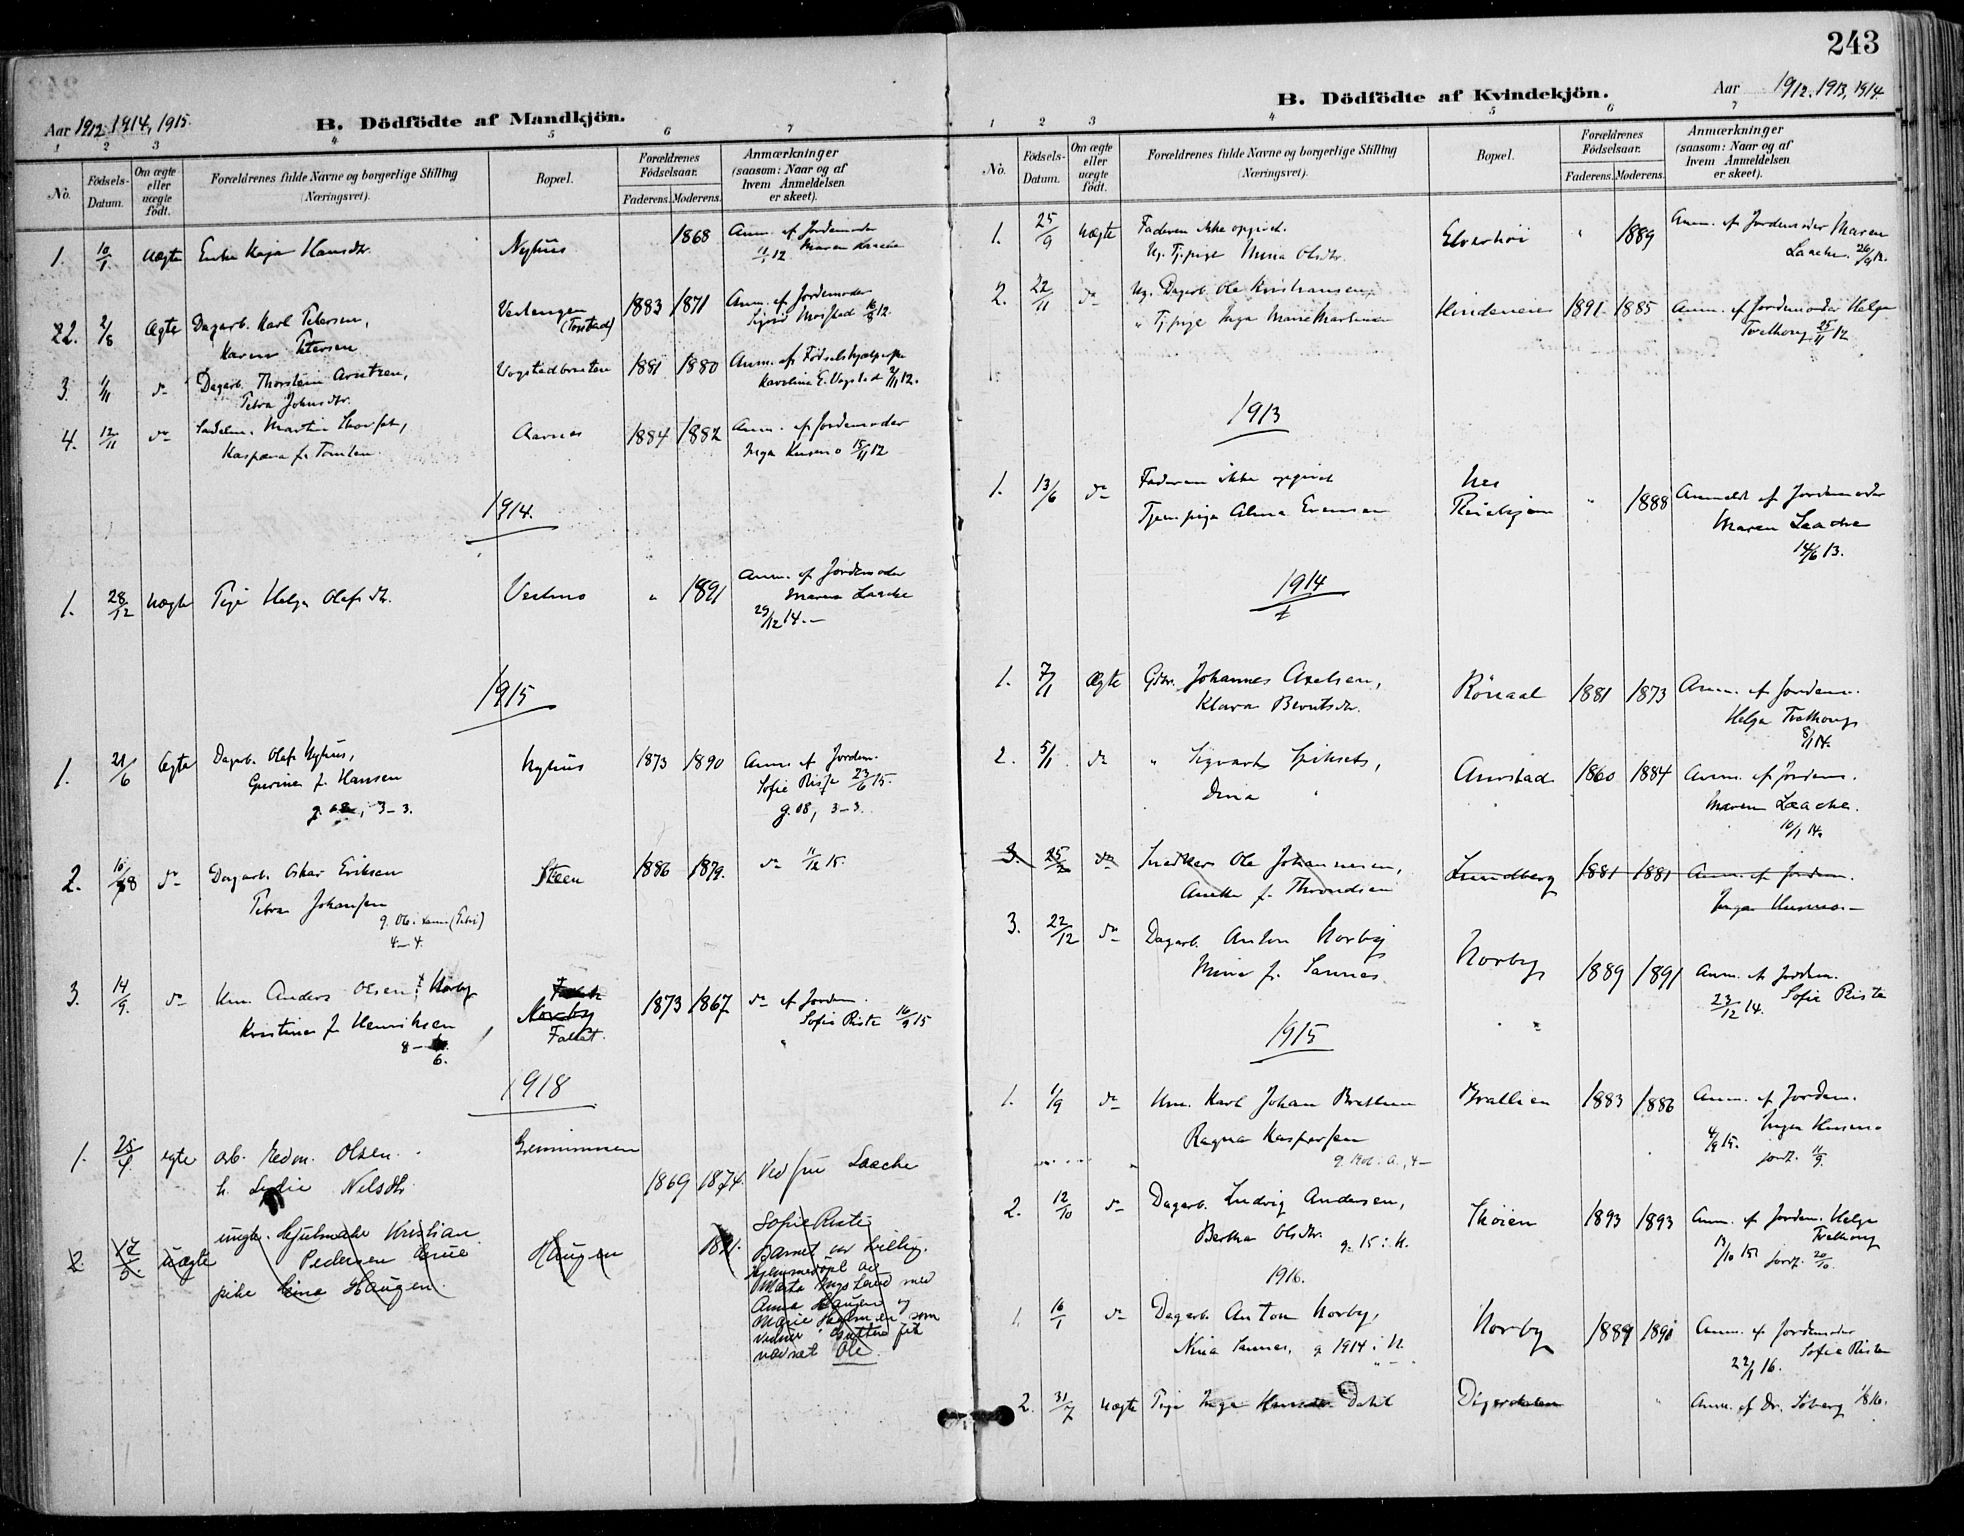 243
Aar 1912. 1914, 1915.
B. Dödfödte af Mandkjön.
1 2 3 4 5 6 7
No.
Födsels-
Datum.
Om ægte
eller
uægte
födt.
Forældrenes fulde Navne og borgerlige Stilling
(Næringsvei).
Bopæl.
Forældrenes
Födselsaar.
Faderens. Moderens.
Anmærkninger
(saasom: Naar og af
hvem Anmeldelsen
er skeet).
1. 10/1 Uægte Enke Kaja Hansdtr. Nyhus 1868 Anm. af Jordemoder
Maren Laache
11/1 12
2. 2/8 Ægte Dagarb. Karl Petersen, Vestengen 1883 1871 Anm. af Jordemoder
Karen Petersen (Torstad) Sigrid Morstad 16/8 12.
3. 1/11 do Dagarb. Thorstein Arntzen, Vogstadbraaten 1881 1880 Anm. af Fødselshjælperske
Petra Johnsdtr. Karoline E. Vogstad 2/11 12.
4. 12/11 do Martin Aarnes 1884 1882 Anm. af Jordemoder
Kaspara f. Tomten. Inga Husmo 15/11 12
1914.
1. 28/12 Uægte Pige Helga Olafsdtr. Vestmo " 1891 Anm. af Jordemoder
Maren Laache
29/12 14. –
1915
1. 21/6 Ægte Dagarb. Olaf Nyhus, Nyhus 1873 1890 Anm. af Jordem.
Gurine f. Hansen Sofie Riste 23/6 15.
g. 08, 3–3. g. 08, 3–3.
2. 10/8 do Dagarb. Oskar Eriksen Steen 1886 1879. do 11/12 15.
Petra Johansen
g. 06.
4–4.
3. 14/9. do Um. Anders Olsen Norby 1873 1867 do af Jordem.
Kristine f. Henriksen Norby Sofie Riste 16/9 15
8– 6. Fallet.
1918
1. 25/4 egte arb. Edon. Olsen. Grennimmen 1869 1874. Ved fru Laache
h. Lydie Nelsdtr.
2. 17/5. uægte ungk. Hjulmaker Kristian Haugen 1891. Sofie Riste
Pedersen Grue Barnet var
pike Lina Haugen Hjemmedøpt av
Marta med
Anna Haugen og
Marie som
vidner. Gutten fik
navnet Ole.
243
Aar 1912. 1913, 1914.
B. Dödfödte af Kvindekjön.
1 2 3 4 5 6 7
No.
Födsels-
Datum.
Om ægte
eller
uægte
födt.
Forældrenes fulde Navne og borgerlige Stilling
(Næringsvei).
Bopæl.
Forældrenes
Födselsaar.
Faderens. Moderens.
Anmærkninger
(saasom: Naar og af
hvem Anmeldelsen
er skeet).
1. 25/9 Uægte Faderen ikke opgivet. Elverhöi " 1889 Anm. af Jordemoder Maren
Ug. Tj.pige Mina Olsdtr. Laache. 26/9 12.
2. 22/11 do Ug. Dagarb. Ole Kristiansen 1891 1885 Anm. af Jordemoder Helga
" Tj.pige Inga Marie Martinsen Tvethoug 25/11 12
1913
1. 13/6 do Faderen ikke opgivet Nes " 1888 Anmeldt af Jordemoder
Tjen.pige Alma Evensen Maren Laache
14/6 13.
1914
1. 7/1 Ægte Gbr. Johannes Axelsen, Rönaal 1881 1873 Anm. af Jordem.
Klara Berntsdtr. Helga Tvethoug
8/1 14.
2. 5/1 do " Sigvart Aurstad 1860 1884 Anm. af Jordem.
Dina " Maren Laache.
10/1 14.
3. 25/2 do Snedker Ole Johannesen, Lundberg 1881 1881 Anm. af Jordem.
Anette f. Throndsen Inga Husmo. –
3. 22/12 do Dagarb. Anton Norby Norby 1889 1891 Anm. af Jordem.
Mina f. Sannes. Sofie Riste
23/12 14.
1915
1. 1/9 do Um. Karl Johan Brathen 1883 1886 Anm. af Jordem.
Ragna Kaspersen Inga Husmo
g. 1906: A., 4– 4/9 15. jordf. 11/9.
2. 12/10 do Dagarb. Ludvig Andersen, Thöien 1893 1893 Anm. af Jordem. Helga
Bertha Olsdtr. g. 15 i N. Tvethoug
13/10 15 jordf. 20/10.
1916.
1. 16/1 do Dagarb. Anton Norby, Norby 1889 1891 Anm. af Jordemoder
Mina Sannes, g 1914 i N. Sofie Riste
22/1 16.
2. 31/7 Uægte Pige Inga Hansdtr. Dahl " Anm. af Dr. Söberg 1/8 16.